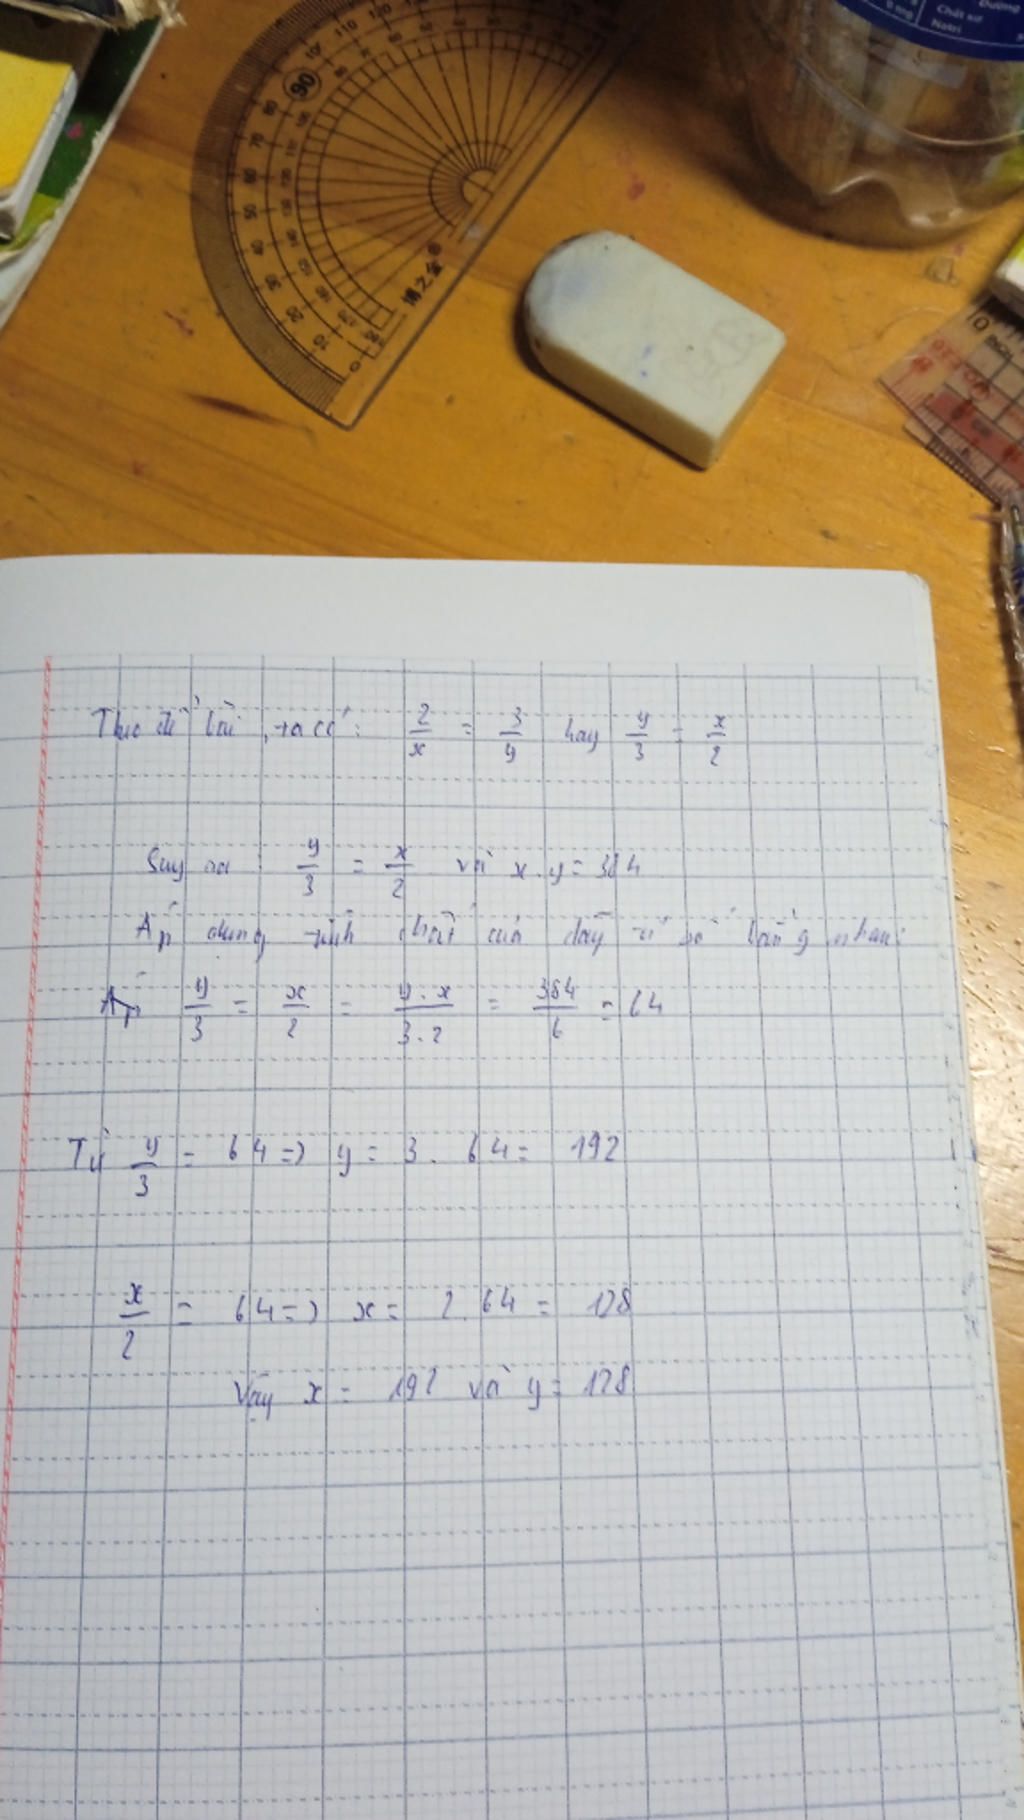 Chất xơ
Natri
Đường
110
120
90
博之金®
Theo đề bài, ta có: 2/x = 3/y hay y/3 = x/2
Suy ra: y/3 = x/2 và x.y = 384
Áp dụng tính chất của dãy tỉ số bằng nhau:
Áp y/3 = x/2 = y.x/3.2 = 384/6 = 64
Từ y/3 = 64 => y = 3. 64 = 192
x/2 = 64 => x = 2.64 = 128
Vậy x = 192 và y = 128